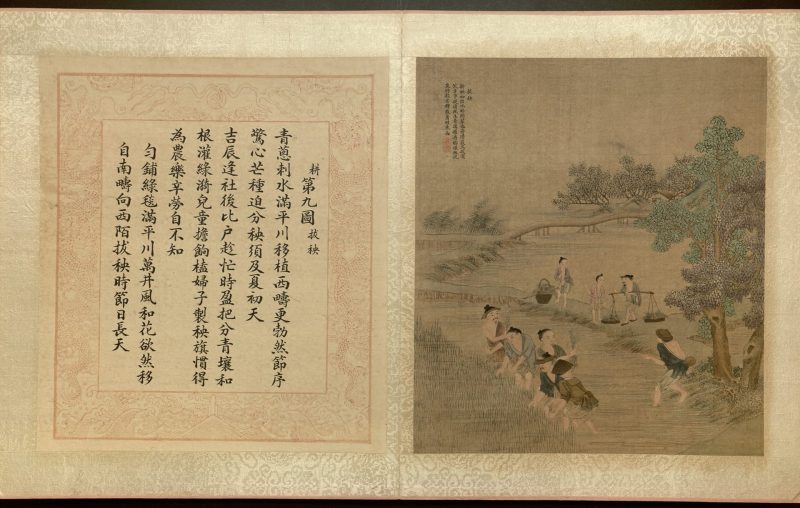 耕 第九圖 拔秧
青蔥刺水滿平川移植西疇更勃然節序
驚心芒種迫分秧須及夏初天
吉辰逢社後比户趁忙時盈把分青壤和
根灌綠漪兒童擔餉榼婦子製秧旗慣得
為農樂辛勞自不知
勻鋪綠毯滿平川萬井風和花欲然移
自南疇向西陌拔秧時節日長天
拔秧